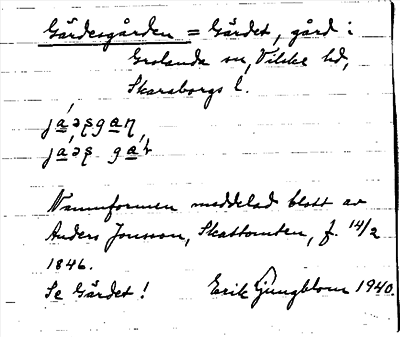 Gärdesgården = Gärdet, gård i
Grolanda sn, Vilske hd,
Skaraborgs l.
Namnformen meddelad blott av
Anders Jonsson, Skattomten, f. 14/2
1846.
Se Gärdet! Erik Ljungblom 1940.